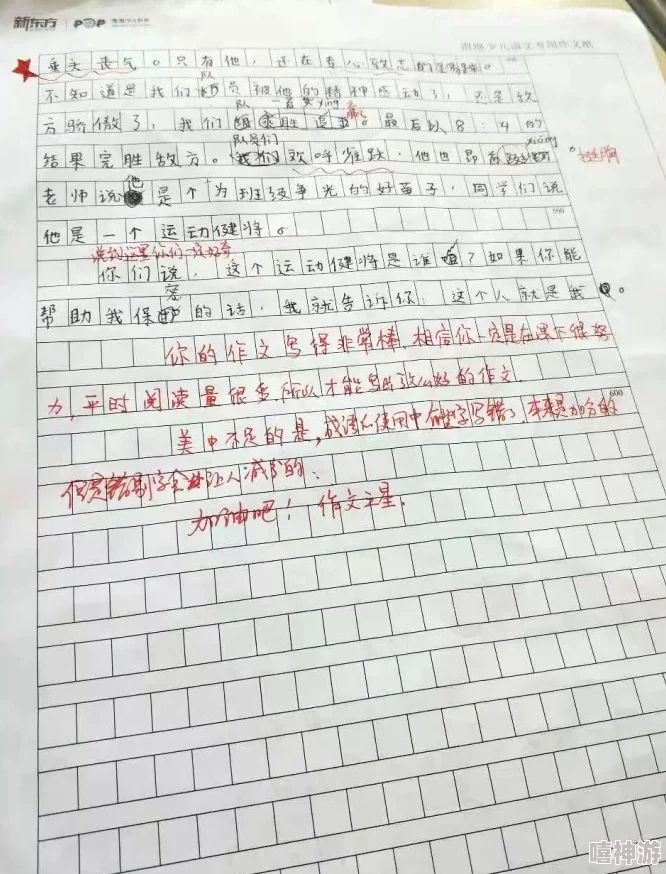 新东方 POP 泡泡少儿教育
泡泡少儿语文专用作文纸
垂头丧气。只有他，还在专心致志的
不知道是我们队员被他的精神感动了，还是敌
队 一直 yíng 赢
方骄傲了，我们乘胜追。最后以8:4的
队员们 xiōng
结果完胜敌方。我们欢呼雀跃，他也昂首 挺胸
老师说他是个为班级争光的好苗子，同学们说
500
他是一个运动健将。
说到这里你们一定好奇
你们说，这个运动健将是谁呢？如果你能
密
帮助我保的话，我就告诉你：这个人就是我。
你的作文写得非常棒，相信你一定是在课下很努
力，平时阅读量很多，所以才能写出这么好的作文。
600
美中不足的是，成语使用中有些字写错了，本来是加分的
但是错别字会让人减分的。
加油吧！作文之星。
嘻神游